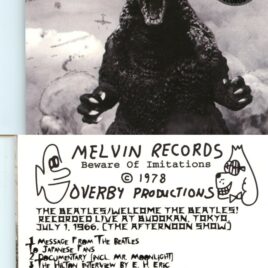 MELVIN RECORDS
Beware Of Imitations
© 1978
OVERBY PRODUCTIONS
THE BEATLES/WELCOME THE BEATLES!
RECORDED LIVE AT BUDOKAN, TOKYO
JULY 1, 1966. (THE AFTERNOON SHOW)
1. MESSAGE FROM THE BEATLES
TO JAPANESE FANS
2. DOCUMENTARY (INCL. MR. MOONLIGHT)
3. THE HILTON INTERVIEW BY E. H. ERIC